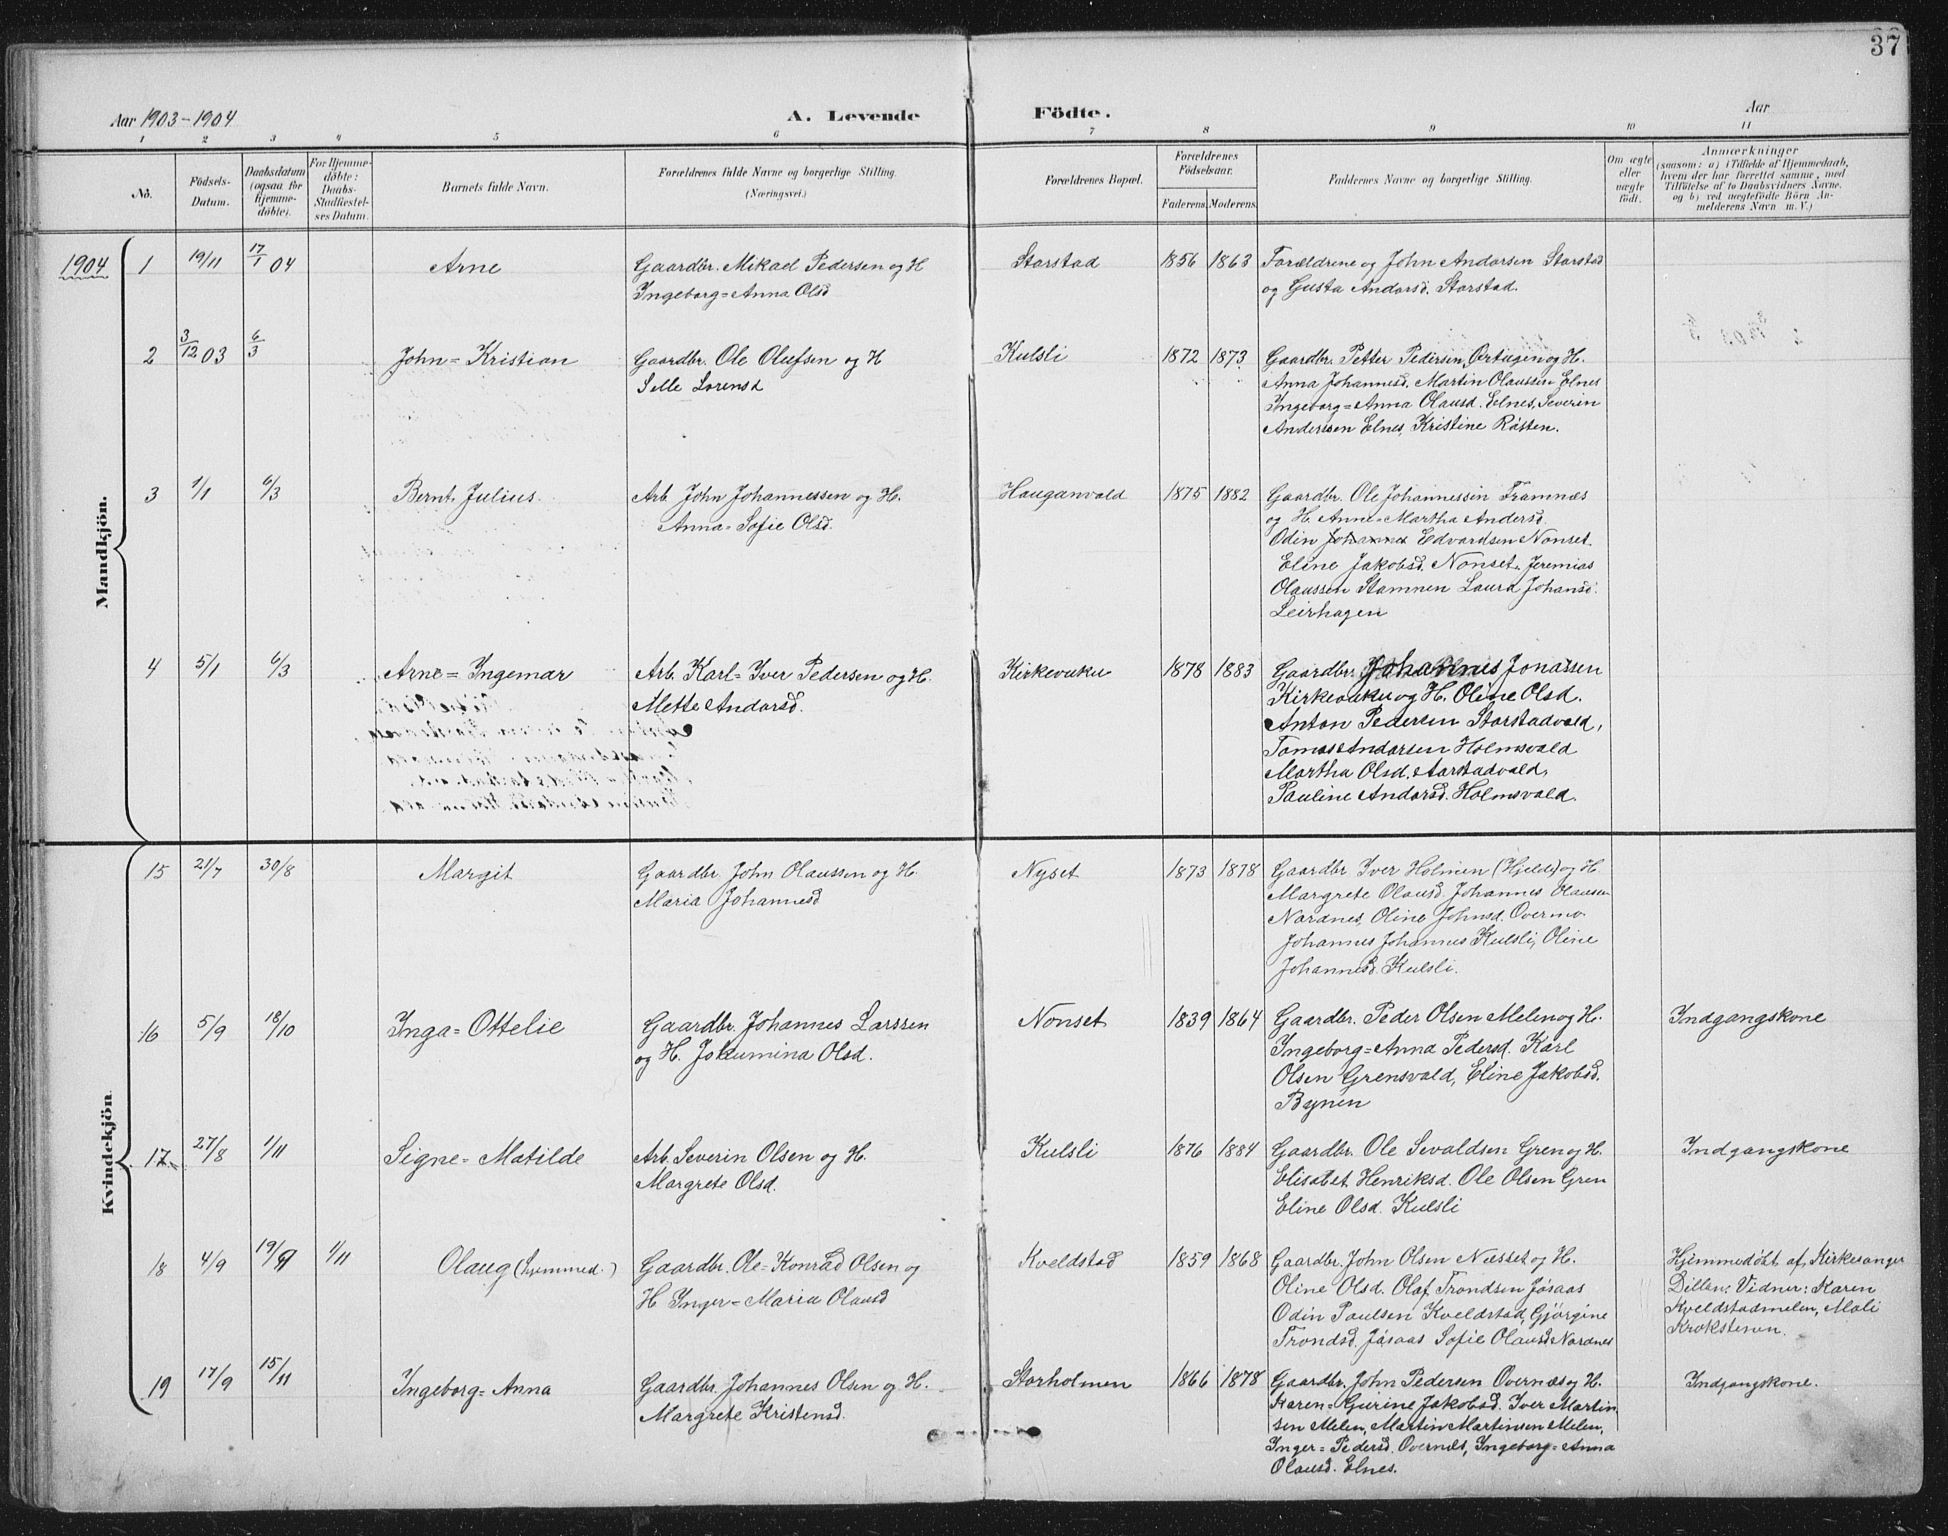 37
Aar 1903-1904 A. Levende Födte. Aar
1 2 3 4 5 6 7 8 9 10 11
No.
Födsels-Datum.
Daabsdatum (ogsaa for hjemme-döbte).
For Hjemme-döbte: Daabs-Stadfæstel-ses Datum.
Barnets fulde Navn.
Forældrenes fulde Navne og borgerlige Stilling.
(Næringsvei.)
Forældrenes Bopæl.
Forældrenes Födselsaar.
Faderens. Moderens.
Faddernes Navne og borgerlige Stilling.
Om ægte eller uægte födt.
Anmærkninger
(saasom: a) i Tilfælde af Hjemmedaab,
hvem der har forrettet samme, med
Tilföielse af to Daabsvidners Navne.
og b) ved uægtefödte Börn An-
melderens Navn m. V.)
Mandkjön.
1904 1 19/11 17/1 04 Arne
Gaardbr. Mikael Pedersen og H
Ingeborg=Anna Olsd
Storstad 1856 1863
Forældrene og John Andersen Storstad
og Gusta Andersd. Storstad.
2 3/12 03 6/3 John=Kristian
Gaardbr. Ole Olufsen og H
Sille Lorensd
Kulsli 1872 1873
Gaardbr. Petter Pedersen, Örtugen og H.
Anna Johannesd. Martin Olaussen Elnes
Ingeborg=Anna Olausd. Elnes, Severin
Anderssen Elnes, Kristine Råsten.
3 1/1 6/3 Bernt Julius.
Arb. John Johannessen og H.
Anna=Sofie Olsd.
Hauganvald 1875 1882
Gaardbr. Ole Johannessen Framnæs
og H. Anne=Martha Andersd.
Odin Johannes Edvardsen Nonset.
Eline Jakobsd. Nonset. Jeremias
Olaussen Stamnen Laura Johansd.
Leirhagen
4 5/1 6/3 Arne=Ingemar
Arb. Karl=Iver Pedersen og H.
Mette Andersd.
Kirkevuku 1878 1883
Gaardbr. Johannes Jonassen
Kirkevuku og H. Oline Olsd.
Anton Pedersen Storstadvald,
Tomas Andersen Holmsvald
Martha Olsd. Storstadvald,
Pauline Andersd. Holmsvald.
Kvindekjön.
15 21/7 30/8 Margit
Gaardbr. John Olaussen og H.
Maria Johannesd
Nyset 1873 1878
Gaardbr Iver Holmen (Hjelde) og H
Margrete Olausd. Johannes Olausen
Nordnes, Oline Johnsd. Overmo
Johannes Johannes Kulsli, Oline
Johannesd. Kulsli.
16 5/9 18/10 Inga=Ottelie
Gaardbr. Johannes Larssen
og H. Jokumina Olsd.
Nonset 1839 1864
Gaardbr. Peder Olsen Melen og H.
Ingeborg=Anna Pedersd. Karl
Olsen Grensvald, Eline Jakobsd.
Bynen
Indgangskone
17 27/8 1/11 Signe=Matilde
Arb. Severin Olsen og H.
Margrete Olsd.
Kulsli 1876 1884
Gaardbr. Ole Sevaldsen Gren og H.
Elisabet Henriksd. Ole Olsen Gren
Eline Olsd. Kulsli
Indgangskone
18 4/9 19/9 1/11 Olaug (hjemmed.)
Gaardbr. Ole=Konrad Olsen og
H Inger=Maria Olausd
Kveldstad 1859 1868
Gaardbr. John Olsen Næsset og H.
Oline Olsd. Olaf Trondsen Jøsaas
Odin Paulsen Kveldstad, Gjørgine
Trondsd. Jøsaas Sofie Olausd. Nordnes
Hjemmedøbt af Kirkesanger
Dillen; Vidner: Karen
Kveldstadmelen, Mali
Kroksteren.
19 17/9 15/11 Ingeborg=Anna
Gaardbr. Johannes Olsen og H.
Margrete Kristensd.
Storholmen 1866 1878
Gaardbr. John Pedersen Overnæs og H.
Karen=Gurine Jakobsd. Iver Martin
sen Melen, Martin Martinsen Melen,
Inger=Pedersd. Overnes, Ingeborg=Anna
Olausd. Elnes.
Indgangskone.